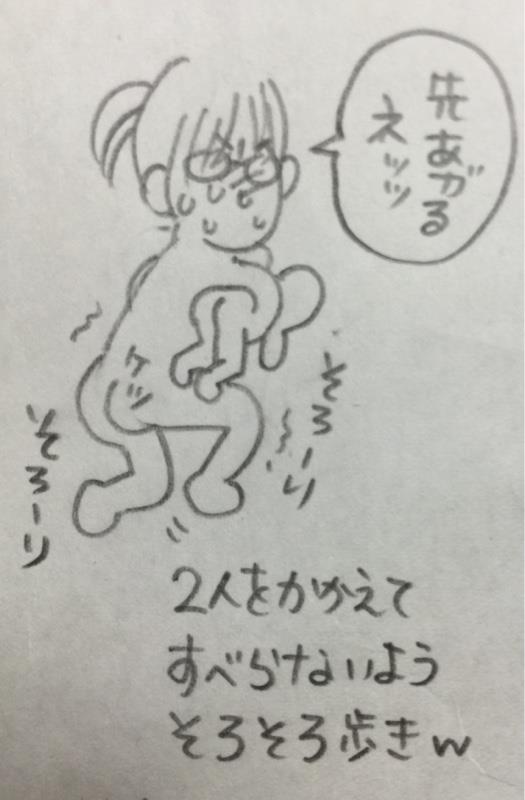 先あがる
ネッッ
ケツ
そろーり
そろーり
2人をかかえて
すべらないよう
そろそろ歩きw